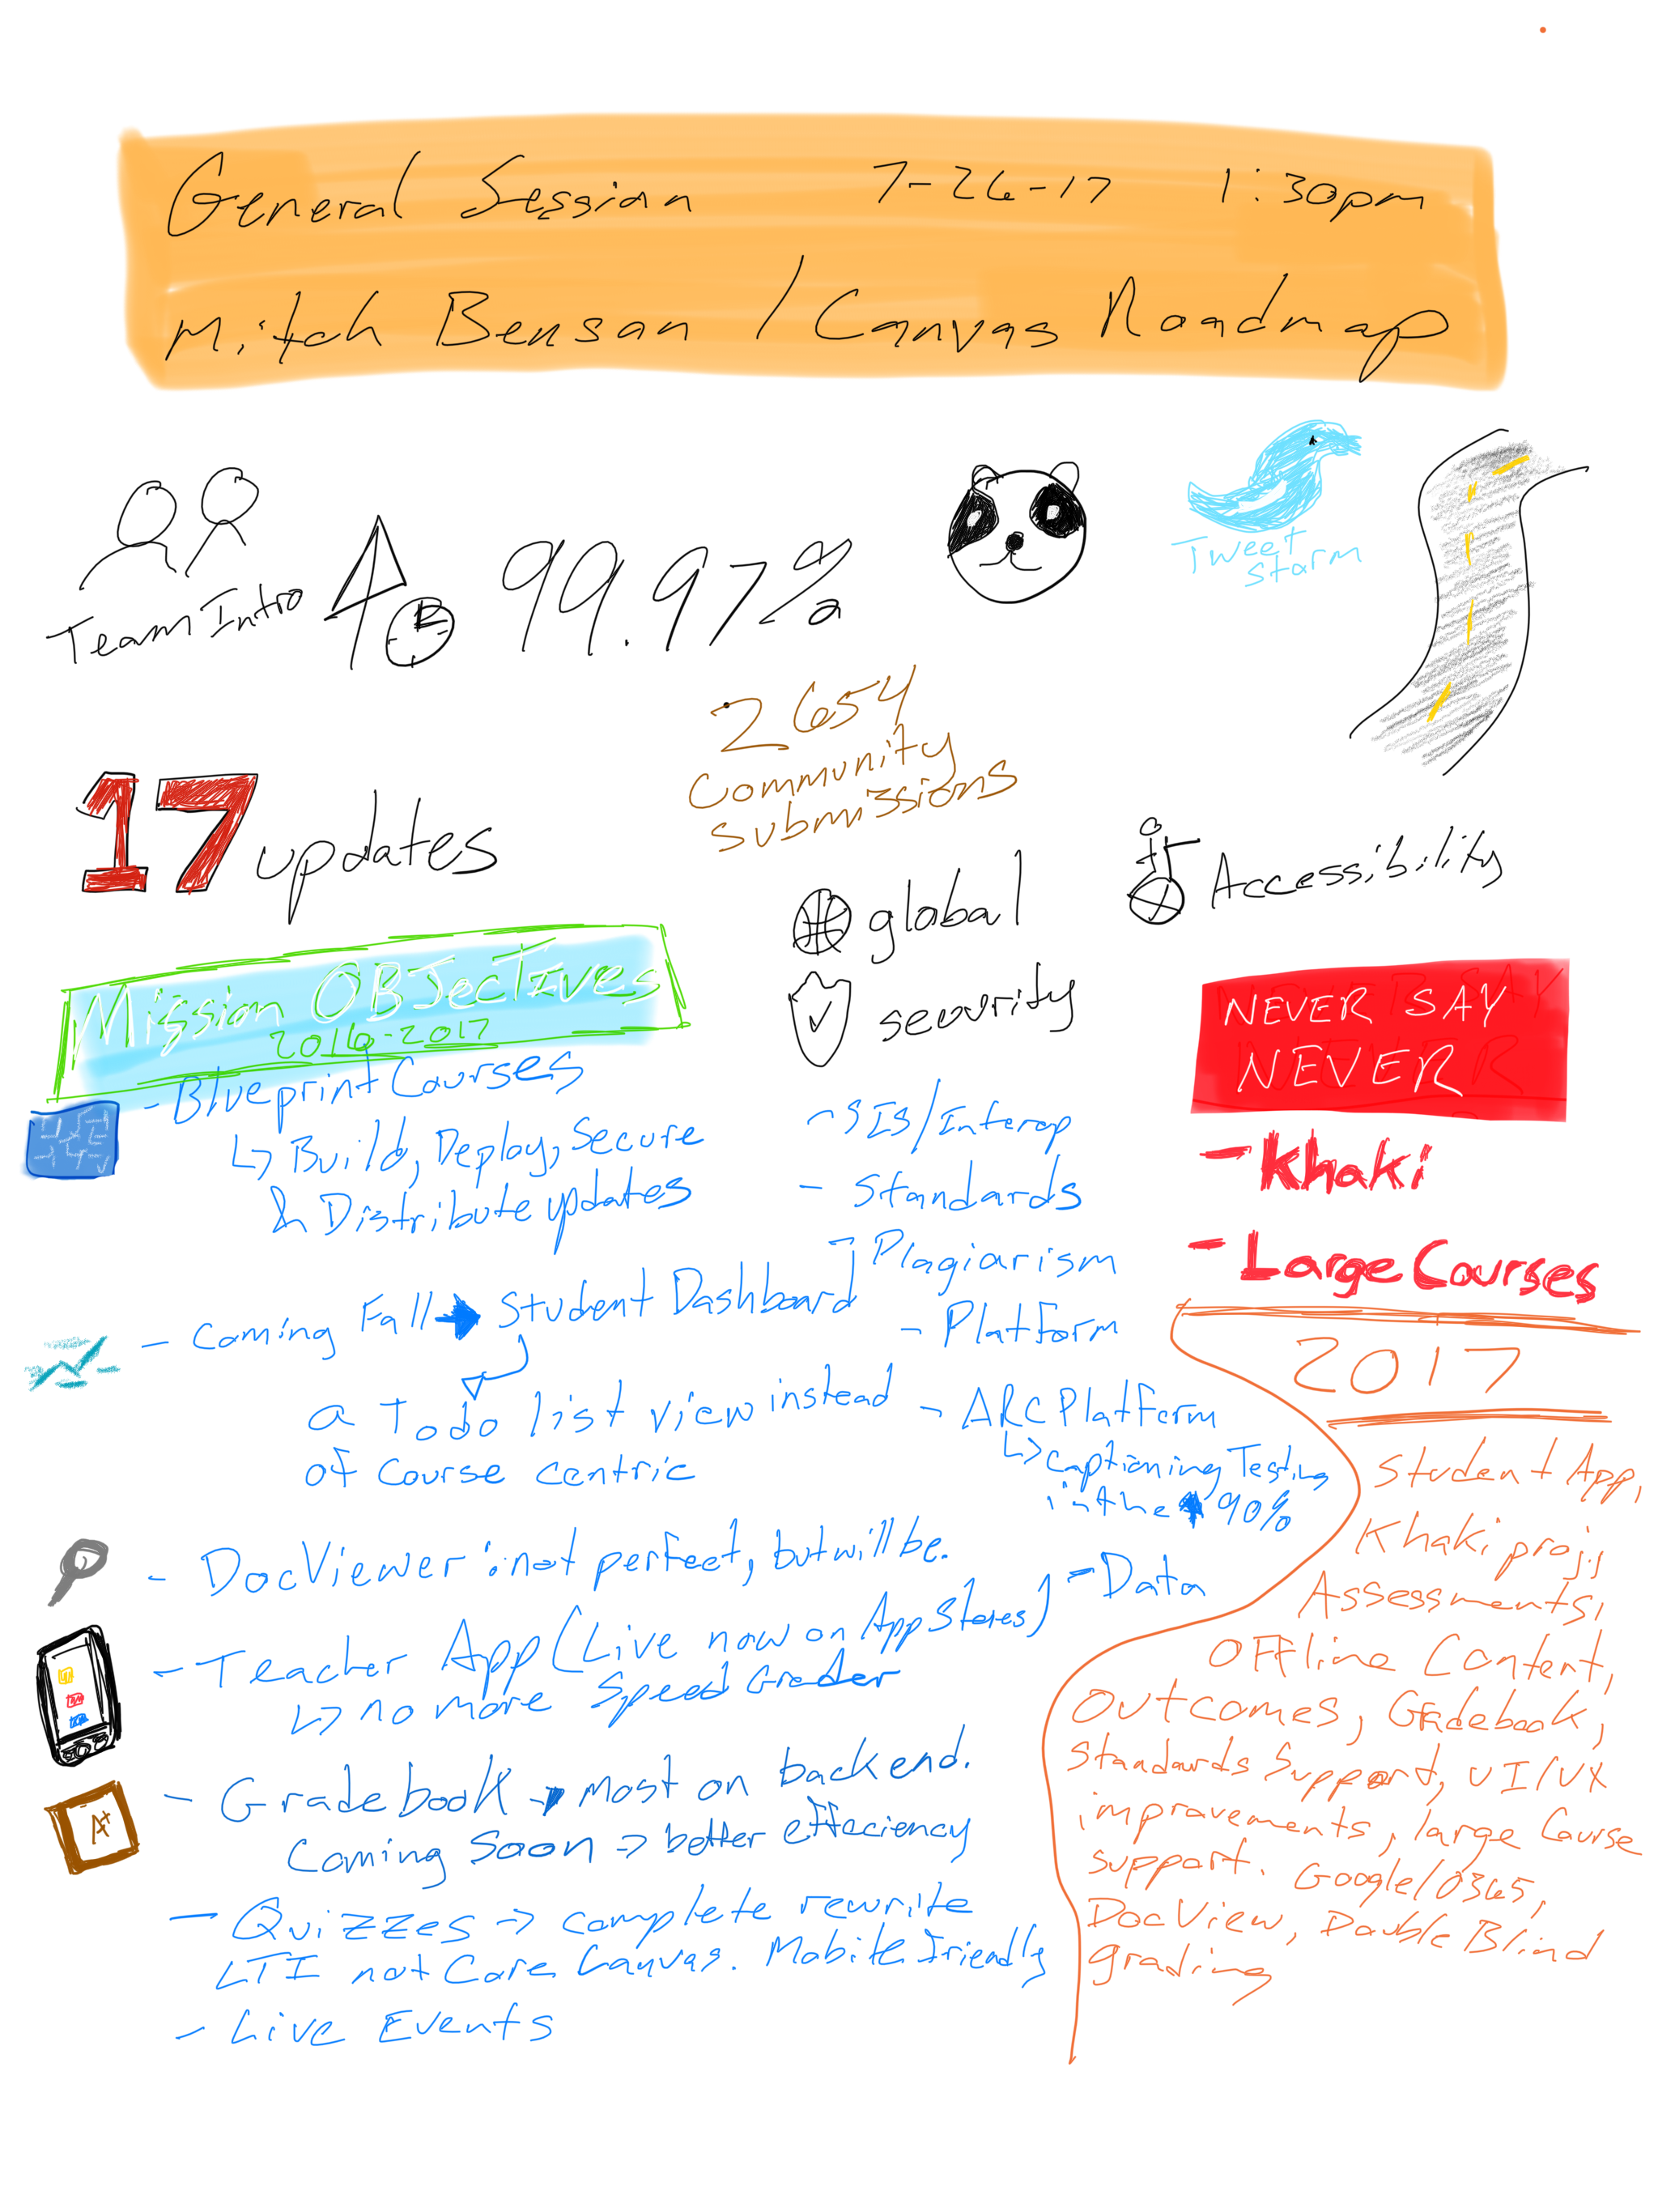 General Session 7-26-17 1:30pm
Mitch Benson / Canvas Roadmap
Team Intro
99.97%
Tweet
Storm
2654
Community
Submissions
17 updates
global
Accessibility
security
Mission OBJectives
2016-2017
- Blueprint Courses
↳ Build, Deploy, Secure
& Distribute updates
- Coming Fall → Student Dashboard
a Todo list view instead
of course centric
- DocViewer: not perfect, but will be.
- Teacher App (Live now on App Stores)
↳ no more Speed Grader
- Gradebook → most on backend.
Coming Soon → better effeciency
- Quizzes → complete rewrite
LTI not Core Canvas. Mobile Friendly
- Live Events
- SIS/Interop
- Standards
- Plagiarism
- Platform
- ARC Platform
↳ captioning Testing
in the ↑ 90%
- Data
NEVER SAY
NEVER
- Khaki
- Large Courses
2017
Student App,
Khaki proj.,
Assessments,
Offline Content,
Outcomes, Gradebook,
Standards Support, UI/UX
improvements, large Course
support. Google/O365,
DocView, Double Blind
grading